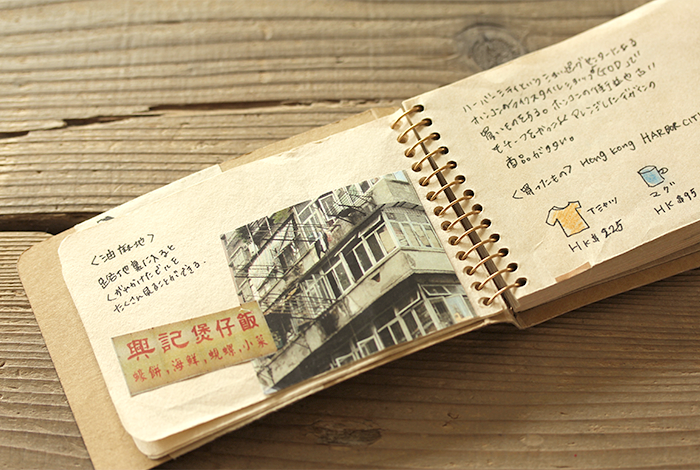 <油麻地>
路地裏に入ると
たくさん見ることができる。
興記煲仔飯
蠔餅,海鮮,蜆蝶,小菜
ハーバーシティというショッピングセンターにある
ホンコンのライフスタイルショップ"GOD"で
買いものをする。ホンコンの
モチーフをポップにアレンジしたデザインの
商品が多い。
<買ったもの> HONG KONG HARBOR CITY
Tシャツ
HK$225
マグ
HK$95